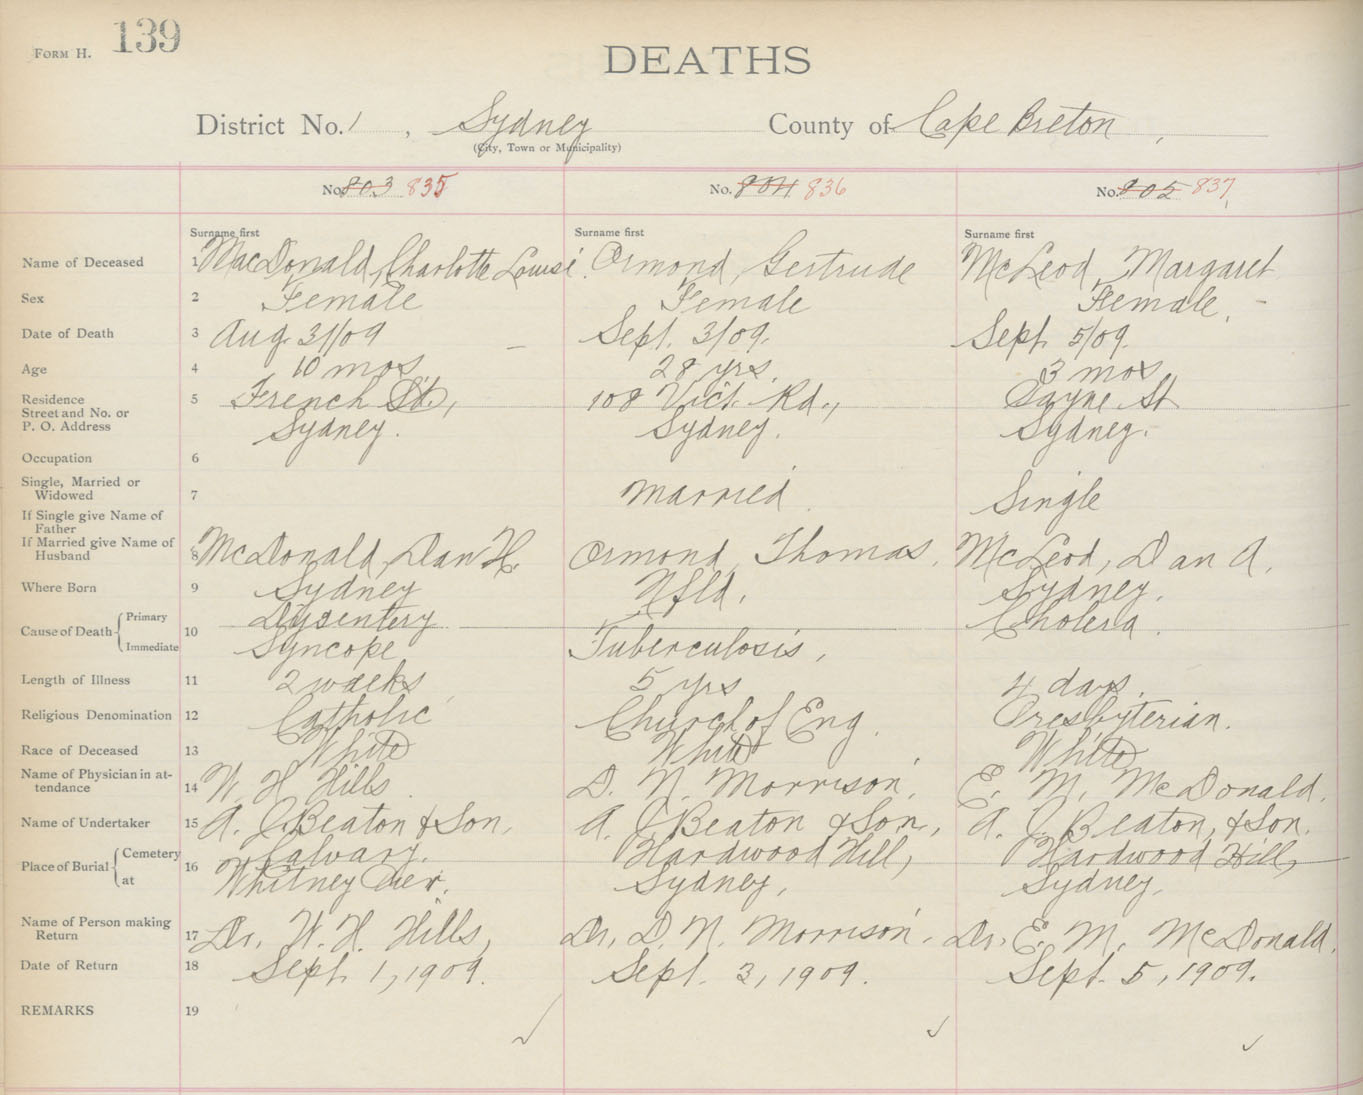 FORM H. 139
DEATHS
District No. 1, Sydney County of Cape Breton,
(City, Town or Municipality)
No. 803 835 No. 804 836 No. 805 837
Surname first Surname first Surname first
Name of Deceased 1 MacDonald, Charlotte Louise. Ormond, Gertrude McLeod, Margaret
Sex 2 Female Female Female.
Date of Death 3 Aug. 31/09 Sept. 3/09. Sept. 5/09.
Age 4 10 mos. 28 yrs. 3 mos.
Residence 5 French St., 108 Vict. Rd., Payne St
Street and No. or
P. O. Address Sydney. Sydney. Sydney.
Occupation 6
Single, Married or
Widowed 7 Married. Single
If Single give Name of
Father
If Married give Name of
Husband 8 McDonald, Dan H. Ormond, Thomas. McLeod, Dan A.
Where Born 9 Sydney Nfld. Sydney.
Cause of Death Primary Dysentery Cholera.
10
Immediate Syncope Tuberculosis,
Length of Illness 11 2 weeks 5 yrs 4 days.
Religious Denomination 12 Catholic Church of Eng. Presbyterian.
Race of Deceased 13 White White White
Name of Physician in at-
tendance 14 W. H. Hills. D. N. Morrison. E. M. McDonald.
Name of Undertaker 15 A. J. Beaton & Son. A. J. Beaton & Son, A. J. Beaton, & Son.
Place of Burial Cemetery Calvary. Hardwood Hill, Hardwood Hill,
16
at Whitney Pier. Sydney, Sydney.
Name of Person making
Return 17 Dr. W. H. Hills, Dr. D. N. Morrison. Dr. E. M. McDonald.
Date of Return 18 Sept. 1, 1909. Sept. 3, 1909. Sept. 5, 1909.
REMARKS 19